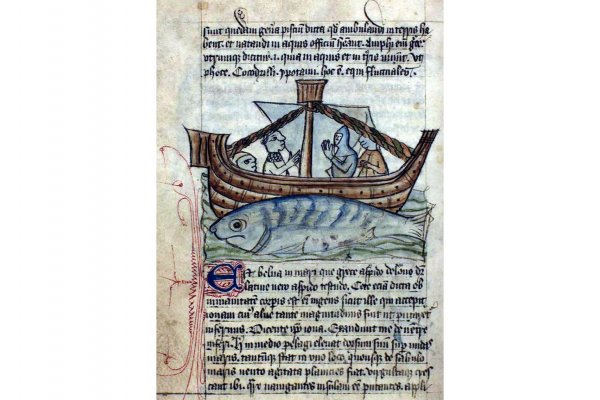 sunt quedam gen̄a pisciū dicta qđ ambulandi in terris ha
bent. et natandi in aquis officiū hānt. Amphi em̄ gre
utrumque dicitur .i. qꝛ in aquis et in tr̄is uiuunt. Vt
phoce. Cocodrilli. ypotami. hoc ē. equi fluctuales.
Est belua in mari que grece aspido delone dr̄
latine uero aspido testudo. Cete etiā dicta ob
inmanitatem corpis est em̄ ingens sicut ille qui excepit
ionam cuiꝰ alue tante magnitudinis fuit ut putaret
infernus. Dicente ip̄o iona. Exaudiuit me de uentre
inferi. in medio pelagi eleuat dorsum suū sup̄ undas
maris. tantūque stat in uno loco. quousque de sabulo
maris uento agitata planicies fiat. virgultaque cres
cant ibi. nauigantes insulam eē putantes. appli